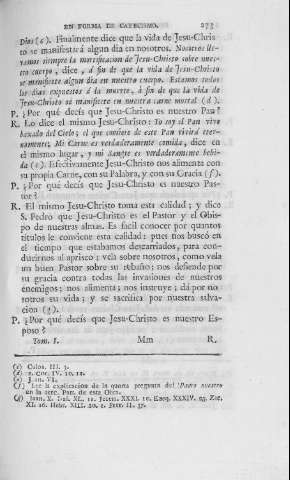 EN FORMA DE CATECISMO. 273
Dios (c). Finalmente dice que la vida de Jesu-Chris
to se manifestará algun dia en nosotros. Nosotros lle-
vamos siempre la mortificacion de Jesu-Christo sobre nues-
tro cuerpo, dice, á fin de que la vida de Jesu-Christo
se manifieste algun dia en nuestro cuerpo. Estamos todos
los dias expuestos á la muerte, á fin de que la vida de
Jesu-Christo se manifieste en nuestra carne mortal (d).
P. ¿Por qué decís que Jesu-Christo es nuestro Pan?
R. Lo dice el mismo Jesu-Christo: Yo soy el Pan vivo
baxado del Cielo; el que comiere de este Pan vivirá eter-
namente; Mi Carne es verdaderamente comida, dice en
el mismo lugar, y mi Sangre es verdaderamente bebi-
da (e). Efectivamente Jesu-Christo nos alimenta con
su propia Carne, con su Palabra, y con su Gracia (f).
P. ¿Por qué decís que Jesu-Christo es nuestro Pas-
tor?
R. El mismo Jesu-Christo toma esta calidad; y dice
S. Pedro que Jesu-Christo es el Pastor y el Obis-
po de nuestras almas. Es facil conocer por quantos
titulos le conviene esta calidad: pues nos buscó en
el tiempo que estabamos descarriados, para con-
ducirnos al aprisco; vela sobre nosotros, como vela
un buen Pastor sobre su rebaño; nos defiende por
su gracia contra todas las invasiones de nuestros
enemigos; nos alimenta; nos instruye; dá por no-
sotros su vida; y se sacrifica por nuestra salva-
cion (g).
P. ¿Por qué decís que Jesu-Christo es nuestro Es-
poso?
Tom. I. Mm R.
(c) Colos. III. 3.
(d) 2. Cor. IV. 10. 11.
(e) Joan. VI.
(f) la explicacion de la quarta pregunta del Padre nuestro
en la Part. de esta Obra.
(g) Joan. X. Isai. XL. 11. Jerem. XXXI. 10. Ezeq. XXXIV. 23. Zac.
XI. 16. Hebr. XIII. 20. 1. Petr. II. 25.